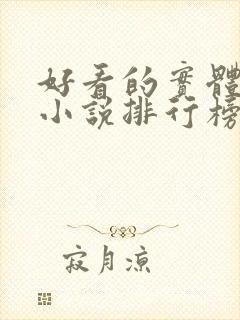 好看的實體
小說排行榜
寂月涼